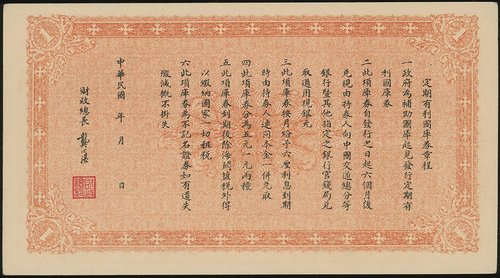 定期有利國庫券章程
一政府為補助國庫起見發行定期有
利國庫券
二此項庫券自發行之日起六個月後
兌現由持券人向中國交通總分等
銀行暨其他指定之銀行官錢局兌
取通用現銀元
三此項庫券按月給予六厘利息到期
時由持券人連同本金一併兌取
四此項庫券分為五元一元兩種
五此項庫券到期後除海關鹽稅外得
以繳納國家一切租稅
六此項庫券為不記名證券如有遺失
燬滅概不掛失
中華民國 年 月 日
財政總長
1
1
1
1